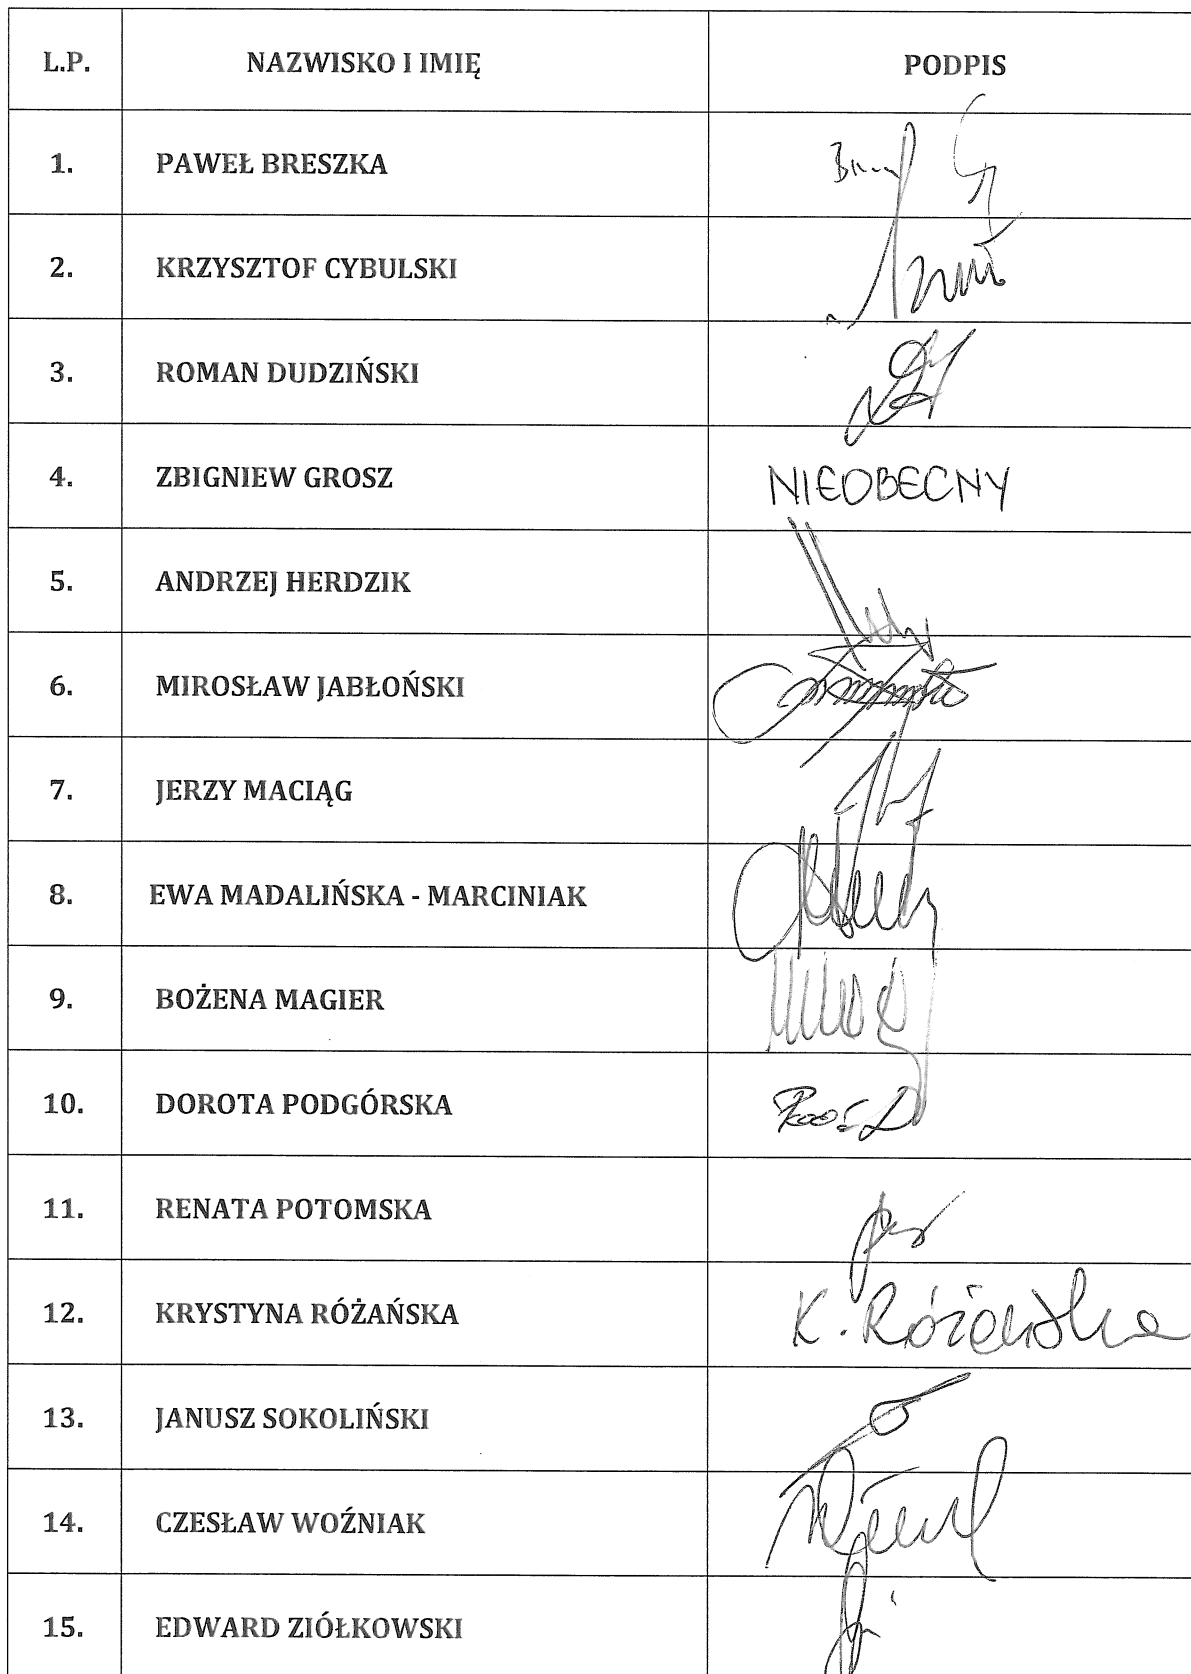 L.P. NAZWISKO I IMIĘ PODPIS
1. PAWEŁ BRESZKA
2. KRZYSZTOF CYBULSKI
3. ROMAN DUDZIŃSKI
4. ZBIGNIEW GROSZ NIEOBECNY
5. ANDRZEJ HERDZIK
6. MIROSŁAW JABŁOŃSKI
7. JERZY MACIĄG
8. EWA MADALIŃSKA - MARCINIAK
9. BOŻENA MAGIER
10. DOROTA PODGÓRSKA
11. RENATA POTOMSKA
12. KRYSTYNA RÓŻAŃSKA K. Różańska
13. JANUSZ SOKOLIŃSKI
14. CZESŁAW WOŹNIAK
15. EDWARD ZIÓŁKOWSKI